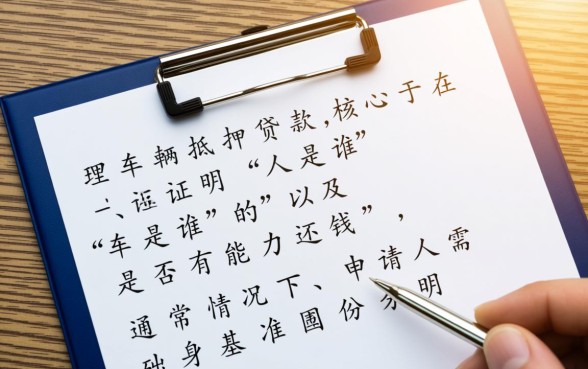 理车辆抵押贷款,核心于在
一、证明“人是谁”
“车是谁”的”以及
是否有能力还钱”,
通常情况下、申请人需
础身基准圕份明